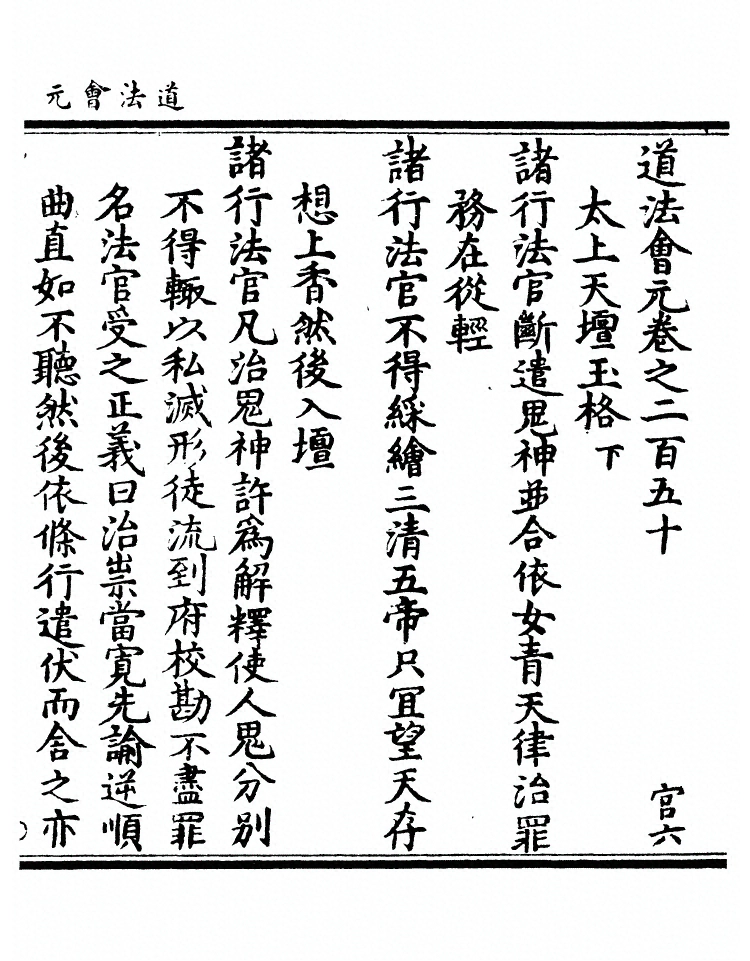 道法會元
道法會元卷之二百五十 宫六
太上天壇玉格 下
諸行法官斷遣鬼神並合依女青天律治罪
務在從輕
諸行法官不得綵繪三清五帝只冝望天存
想上香然後入壇
諸行法官凡治鬼神許爲解釋使人鬼分别
不得輙以私滅形徒流到府校勘不盡罪
名法官受之正義曰治祟當寛先論逆順
曲直如不聽然後依條行遣伏而舍之亦